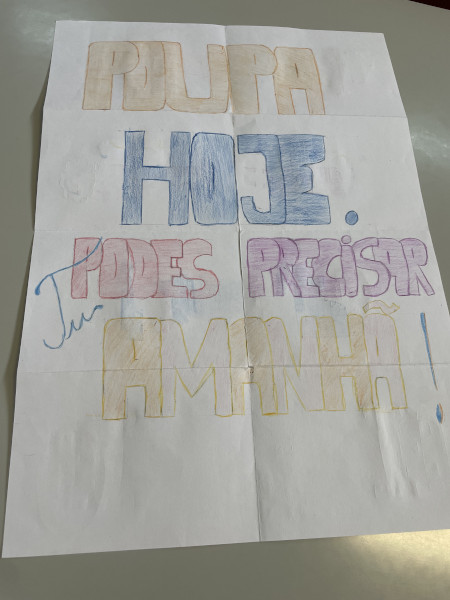 POUPA
HOJE.
Tu PODES PRECISAR
AMANHÃ!